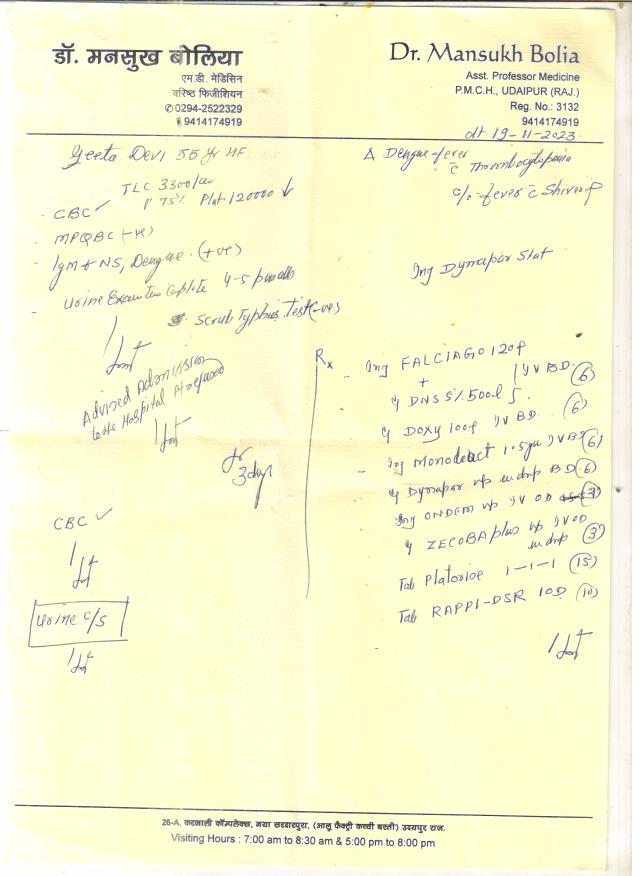 डॉ. मनसुख बोलिया
एम.डी. मेडिसिन
वरिष्ठ फिजीशियन
0294-2522329
9414174919
Dr. Mansukh Bolia
Asst. Professor Medicine
P.M.C.H., UDAIPUR (RAJ.)
Reg. No.: 3132
9414174919
dt 19-11-2023
Geeta Devi 55 Yr HF
TLC 3300/
CBC ✓ P 75% Plat 120000 ↓
MPQBC (-ve)
IgM & NS, Dengue (+ve)
Urine Complete 4-5
Scrub Typhus Test (-ve)
Advised Admission
to the Hospital Pt refused
for
3 days
CBC ✓
Urine C/S
Δ Dengue fever
c̄ Thrombocytopenia
c/o fever c̄ Shivering
Inj Dynapar Stat
Rx
Inj FALCIAGO 120
+
DNS 5% 500 IV BD (6)
DOXY 100 IV BD (6)
Inj 1.5 IV BD (6)
Dynapar in drip BD (6)
Inj ONDEM IV OD (3)
ZECOBA plus IV OD
in drip (3)
Tab 1-1-1 (15)
Tab RAPPI-DSR 1OD (10)
26-A, करनाली कॉम्पलेक्स, नया सरदारपुरा, (आलू फैक्ट्री कच्ची बस्ती) उदयपुर राज.
Visiting Hours : 7:00 am to 8:30 am & 5:00 pm to 8:00 pm